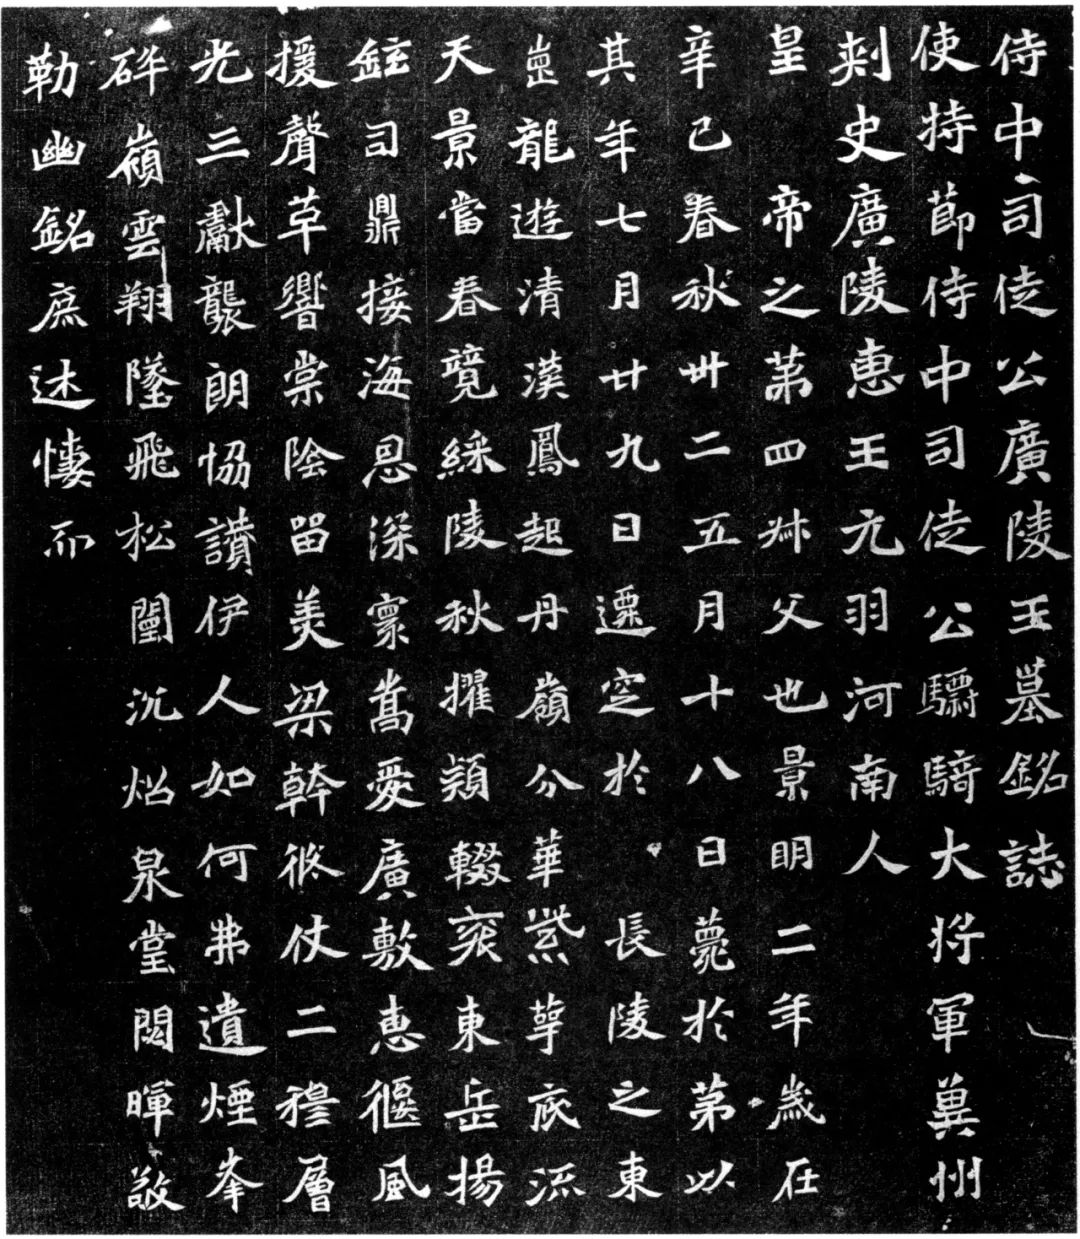 侍中司徒公廣陵王墓銘誌
使持節侍中司徒公驃騎大將軍兾州
刾史廣陵惠王元羽河南人
皇帝之苐四叔父也景明二年歲在
辛巳春秋卌二五月十八日薨於苐以
其年七月廿九日遷窆於長陵之東
崗龍遊清漢鳳起丹嶺分華紫萼底流
天景當春競綵陵秋擢穎輟衮東岳揚
鉉司鼎接海恩深寰嵩愛廣敷惠偃風
援聲草響棠陰留美梁幹俢仗二穆層
光三獻襲朗協讃伊人如何弗遺煙峯
碎嶺雲翔墜飛松闈沉炤泉堂閟暉敬
勒幽銘庶述悽而